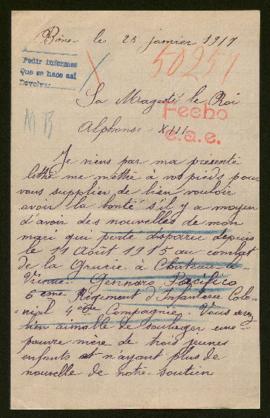 Bône le 23 janvier 1917
Pedir informes
Que se hace así
Devolver
50251
Sa Magesté le Roi
Alphonse XIII
Fecho
c.a.e.
M B
Je viens par ma présente
lettre me mettre à vos pieds pour
vous supplier de bien vouloir
avoir la bonté s'il y a moyen
d'avoir des nouvelles de mon
mari qui porté disparu depuis
le 11 Août 1915 au combat
de la Grurie à
Vienne Gennaro Pacifico
6ème Régiment d'Infanterie Colo-
nial 4ème Compagnie. Vous serez
bien aimable de soulager une
pauvre mère de trois jeunes
enfants et n'ayant plus de
nouvelle de notre soutien